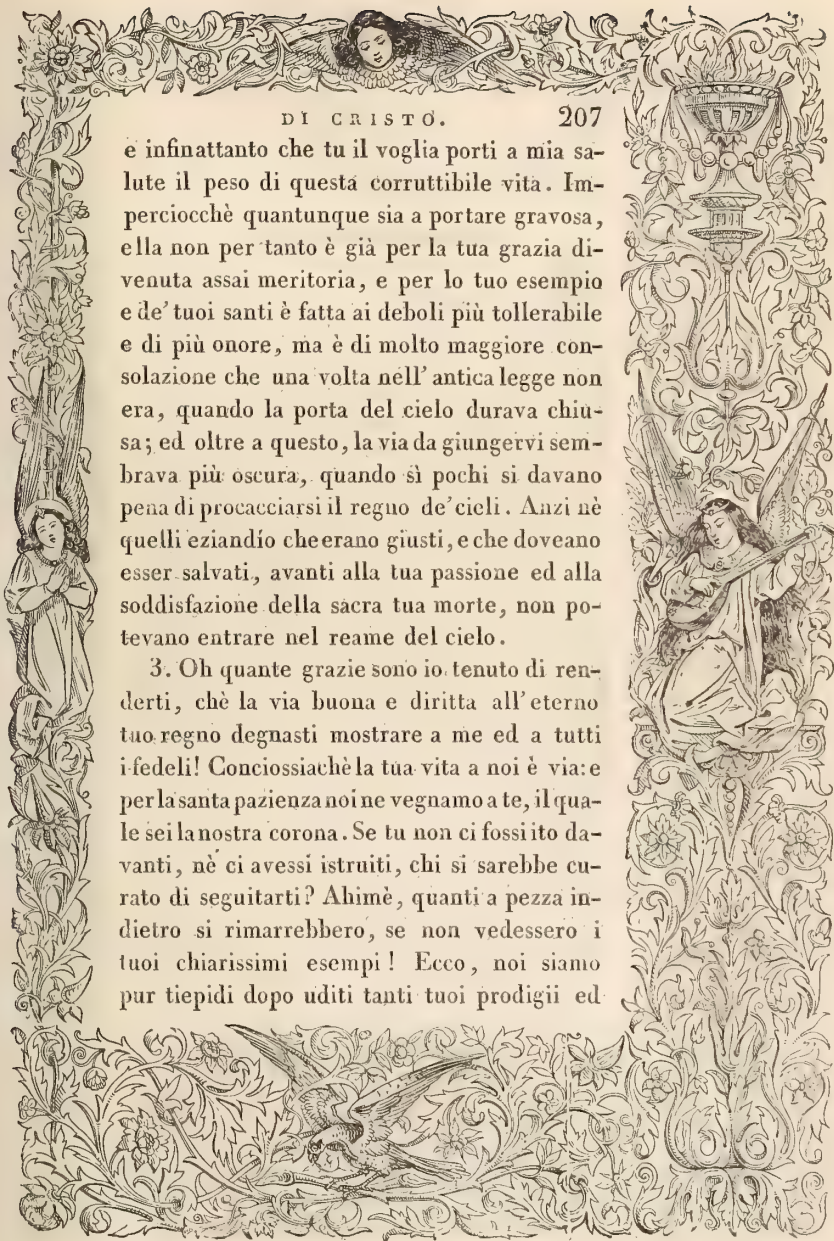 DI CRISTO. 207
e infinattanto che tu il voglia porti a mia sa-
lute il peso di questa corruttibile vita. Im-
perciocchè quantunque sia a portare gravosa,
ella non per tanto è già per la tua grazia di-
venuta assai meritoria, e per lo tuo esempio
e de' tuoi santi è fatta ai deboli più tollerabile
e di più onore, ma è di molto maggiore con-
solazione che una volta nell' antica legge non
era, quando la porta del cielo durava chiu-
sa; ed oltre a questo, la via da giungervi sem-
brava più oscura, quando sì pochi si davano
pena di procacciarsi il regno de' cieli. Anzi nè
quelli eziandío che erano giusti, e che doveano
esser salvati, avanti alla tua passione ed alla
soddisfazione della sacra tua morte, non po-
tevano entrare nel reame del cielo.
3. Oh quante grazie sono io tenuto di ren-
derti, chè la via buona e diritta all' eterno
tuo regno degnasti mostrare a me ed a tutti
i fedeli! Conciossiachè la tua vita a noi è via: e
per la santa pazienza noi ne vegnamo a te, il qua-
le sei la nostra corona. Se tu non ci fossi ito da-
vanti, nè ci avessi istruiti, chi si sarebbe cu-
rato di seguitarti? Ahimè, quanti a pezza in-
dietro si rimarrebbero, se non vedessero i
tuoi chiarissimi esempi! Ecco, noi siamo
pur tiepidi dopo uditi tanti tuoi prodigii ed